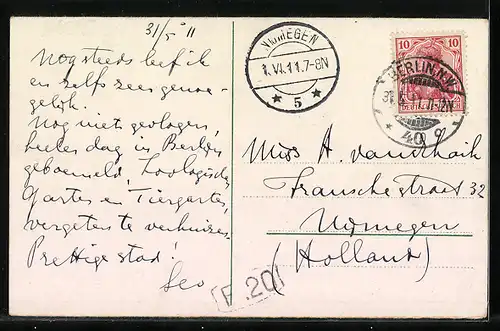 31/5 '11
Nog steeds leef ik
en zelfs zeer genoe-
gelijk.
Nog niet gevlogen,
heelen dag in Berlin
geboemeld, Zoologische
Garten en Tiergarten,
vergeten te verhuizen.
Prettige stad!
Leo
NIJMEGEN
1.VI.11.7-8N
5
10 10
DEUTSCHES REICH
BERLIN.N.W.
40
Miss A. van
Fransche straat 32
Nijmegen
(Holland)